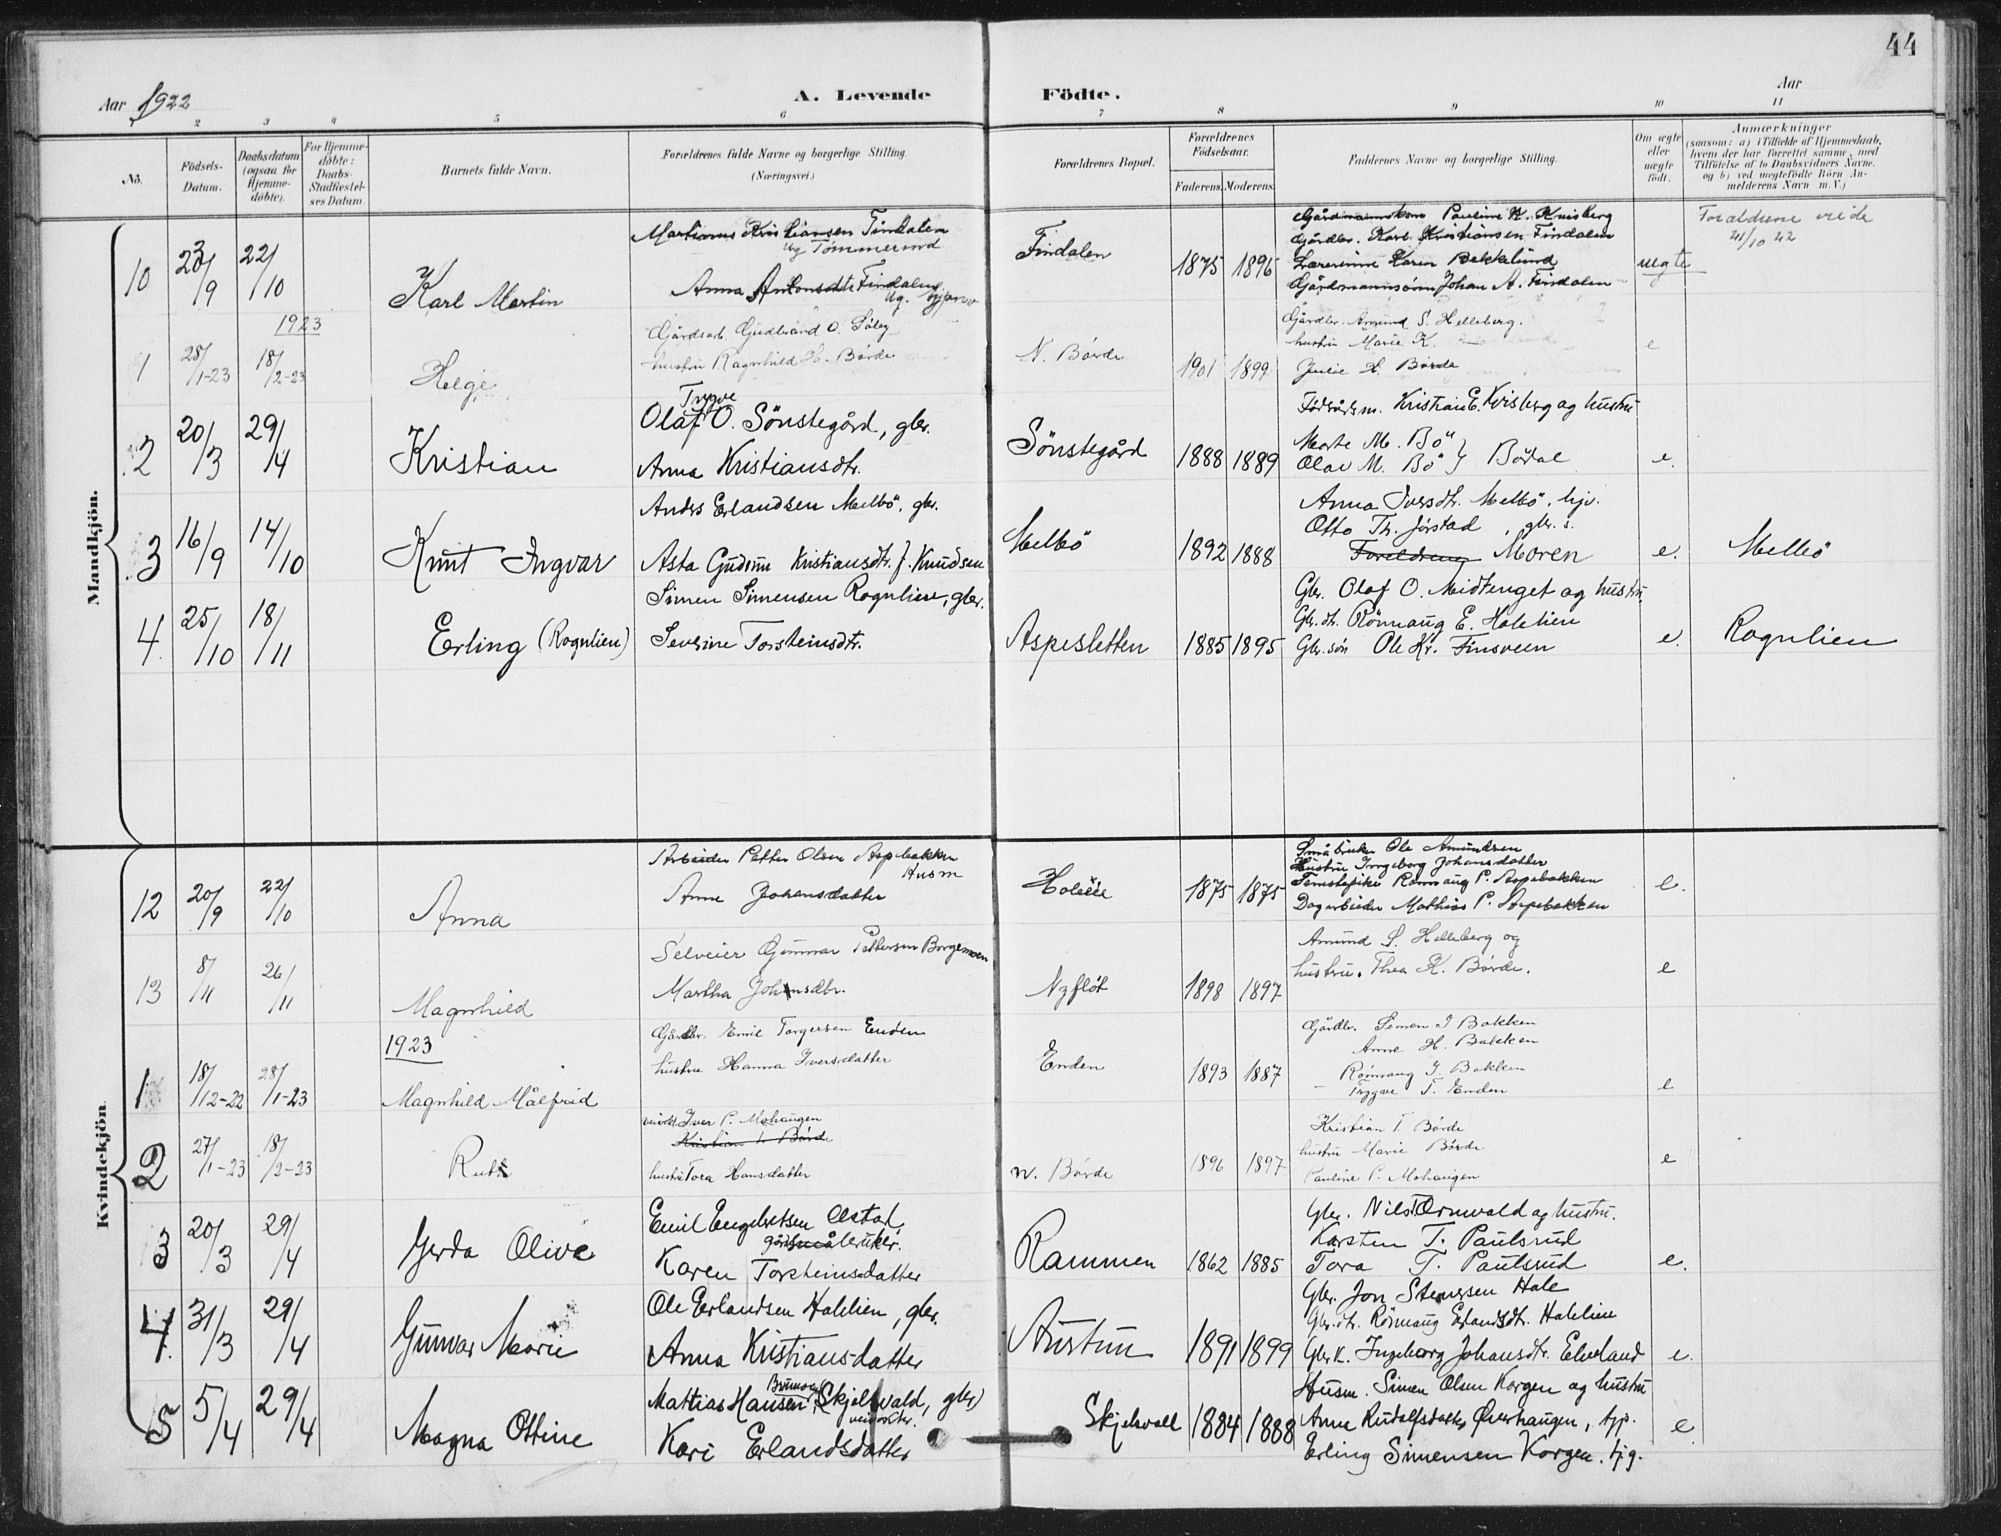 44
Aar 1922
A. Levende
Födte.
Aar
2 3 4 5 6 7 8 9 10 11
No.
Födsels-
Datum.
Daabsdatum
(ogsaa for
Hjemme-
döbte).
For Hjemme-
döbte:
Daabs-
Stadfæstel-
ses Datum.
Barnets fulde Navn.
Forældrenes fulde Navne og borgerlige Stilling.
(Næringsvei.)
Forældrenes Bopæl.
Forældrenes
Födselsaar.
Faderens. Moderens.
Faddernes Navne og borgerlige Stilling.
Om ægte
eller
uægte
födt.
Anmærkninger
(saasom: a) i Tilfælde af Hjemmedaab,
hvem der har forrettet samme, med
Tilföielse af to Daabsvidners Navne.
og b) ved uægtefödte Börn An-
melderens Navn m. V.)
Mandkjön.
10
23/9
22/10
Karl Martin
Martinus Kristiansen Findalen
ug Tömmermd
Anna Antonsdtr Findalen
ug.
Findalen
1875 1896
Pauline K. Kvisberg
Gårdbr. Karl Kristiansen Findalen
Lærerinne Karen Bakkelund
Gårdmannssönn Johan A. Findalen
uegte
Forældrene viede
21/10 22
1923
1
28/1-23
18/2-23
Helge
Gårdsarb. Gudbrand O. Söley
hustru Ragnhild H. Börde
N. Börde
1901 1899
Gårdbr. Amund S. Helleberg.
hustru Marie K.
Julie H. Börde
e
2
20/3
29/4
Kristian
Trygve
Olaf O. Sönstegård, gbr.
Anna Kristiansdtr.
Sönstegård
1888 1889
Kristian E. Kvisberg og hustru
Marte M. Bö
Olav M. Bö } Bödal
e.
3
16/9
14/10
Knut Ingvar
Anders Erlandsen Melbö, gbr.
Asta Gudrun Kristiansdtr. f. Knudsen
Melbö
1892 1888
Anna Iversdtr. Melbö, hjv.
Otto Th. Jörstad, gbr. s.
Foreldrene Moren
e.
Melbö
4
25/10
18/11
Erling (Rognlien)
Simen Simensen Rognlien, gbr.
Severine Torsteinsdtr.
Aspesletten
1885 1895
Gbr. Olaf O. Midtenget og hustru.
Gbr. dtr. Rönnaug E. Holelien
Gbr. sön Ole Kr. Finsveen
e.
Rognlien
Kvindekjön.
12
20/9
22/10
Anna
Arbeider Petter Olsen Aspebakken
Husm
Anne Johansdatter
1875 1875
Småbruker Ole Amundsen
Hustru Ingeborg Johansdatter
Tjenstepike Rönnaug P. Aspebakken
Dagarbeider Mathias P. Aspebakken
e.
13
8/11
26/11
Magnhild
Selveier Gunnar Pettersen Borgemoen
Martha Johansdtr.
Nyflöt
1898 1897
Amund S. Helleberg og
hustru. Thea K. Börde.
e
1923
1
18/12-22
28/1-23
Magnhild Målfrid
Gårdbr. Emil Torgersen Enden
hustru Hanna Iversdatter
Enden
1893 1887
Gårdbr. Simen I Bakken
Anne H. Bakken
Rönnaug I. Bakken
Trygve T. Enden
e
2
27/1-23
18/2-23
Ruth
Iver P. Mohaugen
Kristian T. Börde
hustru Tora Hansdatter
N. Börde
1896 1897
Kristian T Börde
hustru Marie Börde
Pauline P. Mohaugen
e
3
20/3
29/4
Gerda Olive
Emil Engebretsen Olstad,
gård småbruker.
Karen Torsteinsdatter
Rammen
1862 1885
Gbr. Nils T. Ornvold og hustru.
Karsten T. Paulsrud
Tora T. Paulsrud
e.
4
31/3
29/4
Gunvor Marie
Ole Erlandsen Holelien, gbr.
Anna Kristiansdatter
Austun
1891 1899
Gbr. Jon Stenersen Hole
Gbr. dtr. Rönnaug Erlandsdtr. Holelien
Gbr. k. Ingeborg Johansdtr. Elveland
e.
5
5/4
29/4
Magna Ottine
Mattias Hansen Skjelsvold, gbr)
veivokter.
Kari Erlandsdatter
Skjelsvold
1884 1888
Husm. Simen Olsen Korgen og hustru
Anne Rudolfsdatter Överhaugen, tjp.
Erling Simensen Korgen. tjg.
e